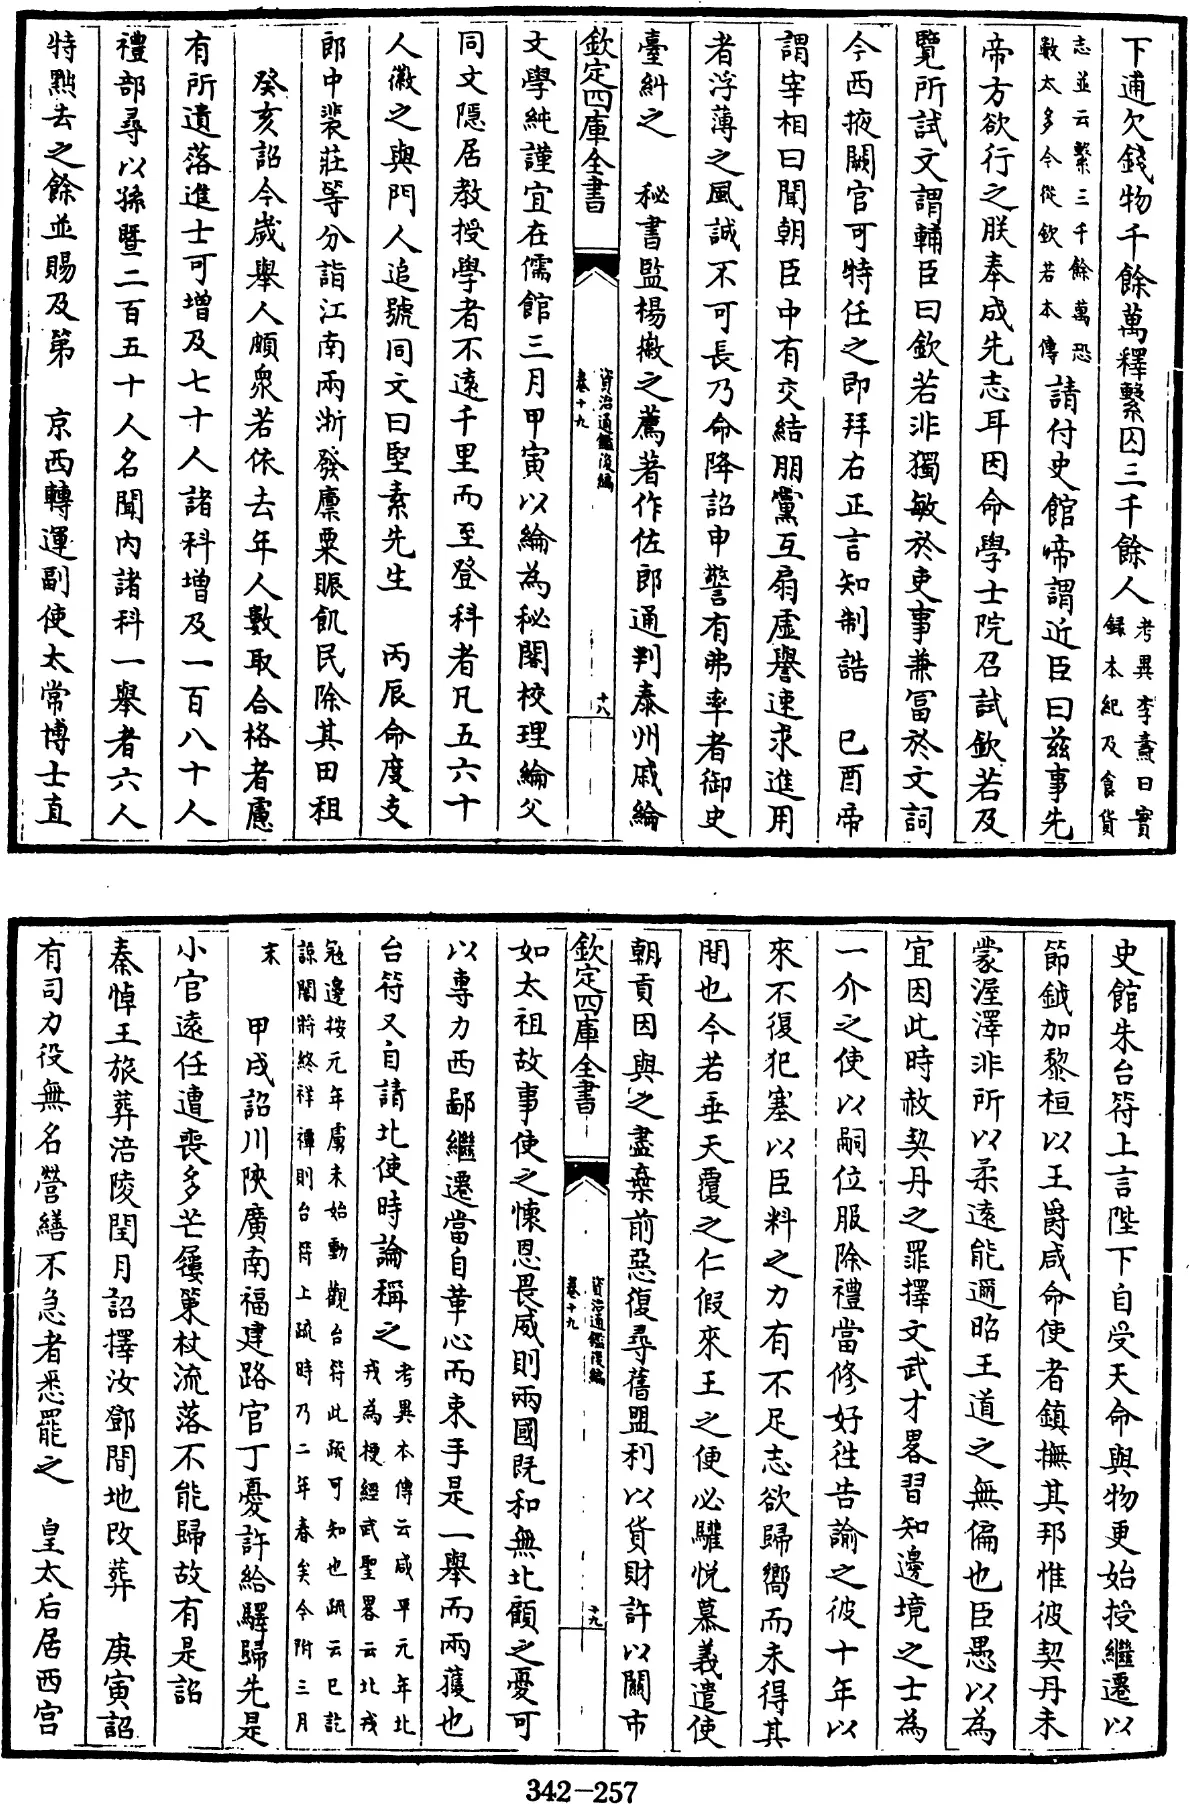 下逋欠錢物千餘萬釋繫囚三千餘人考異李燾曰實
録本紀及食貨
志並云繫三千餘萬恐
數太多今從欽若本傳請付史館帝謂近臣曰茲事先
帝方欲行之朕奉成先志耳因命學士院召試欽若及
覽所試文謂輔臣曰欽若非獨敏於吏事兼富於文詞
今西掖闕官可特任之即拜右正言知制誥　己酉帝
謂宰相曰聞朝臣中有交結朋黨互扇虛譽速求進用
者浮薄之風誠不可長乃命降詔申警有弗率者御史
臺糾之　秘書監楊徽之薦著作佐郎通判泰州戚綸
欽定四庫全書
資治通鑑後編
卷十九
十八
文學純謹宜在儒館三月甲寅以綸為秘閣校理綸父
同文隱居教授學者不遠千里而至登科者凡五六十
人徽之與門人追號同文曰堅素先生　丙辰命度支
郎中裴莊等分詣江南兩浙發廩粟賑飢民除其田租
癸亥詔今歲舉人頗衆若依去年人數取合格者慮
有所遺落進士可增及七十人諸科增及一百八十人
禮部尋以孫暨二百五十人名聞內諸科一舉者六人
特黜去之餘並賜及第　京西轉運副使太常博士直
史館朱台符上言陛下自受天命與物更始授繼遷以
節鉞加黎桓以王爵咸命使者鎮撫其邦惟彼契丹未
蒙渥澤非所以柔遠能邇昭王道之無偏也臣愚以為
宜因此時赦契丹之罪擇文武才畧習知邊境之士為
一介之使以嗣位服除禮當修好往告諭之彼十年以
來不復犯塞以臣料之力有不足志欲歸嚮而未得其
間也今若垂天覆之仁假來王之便必驩悅慕義遣使
朝貢因與之盡棄前惡復尋舊盟利以貨財許以關市
欽定四庫全書
資治通鑑後編
卷十九
十九
如太祖故事使之懷恩畏威則兩國既和無北顧之憂可
以專力西鄙繼遷當自革心而束手是一舉而兩獲也
台符又自請北使時論稱之考異本傳云咸平元年北
戎為梗經武聖畧云北戎
冦邊按元年虜未始動觀台符此疏可知也疏云已訖
諒闇將終祥禫則台符上疏時乃二年春矣今附三月
末
甲戌詔川陝廣南福建路官丁憂許給驛歸先是
小官遠任遭喪多芒屨策杖流落不能歸故有是詔
秦悼王旅葬涪陵閏月詔擇汝鄧間地改葬　庚寅詔
有司力役無名營繕不急者悉罷之　皇太后居西宮
342-257